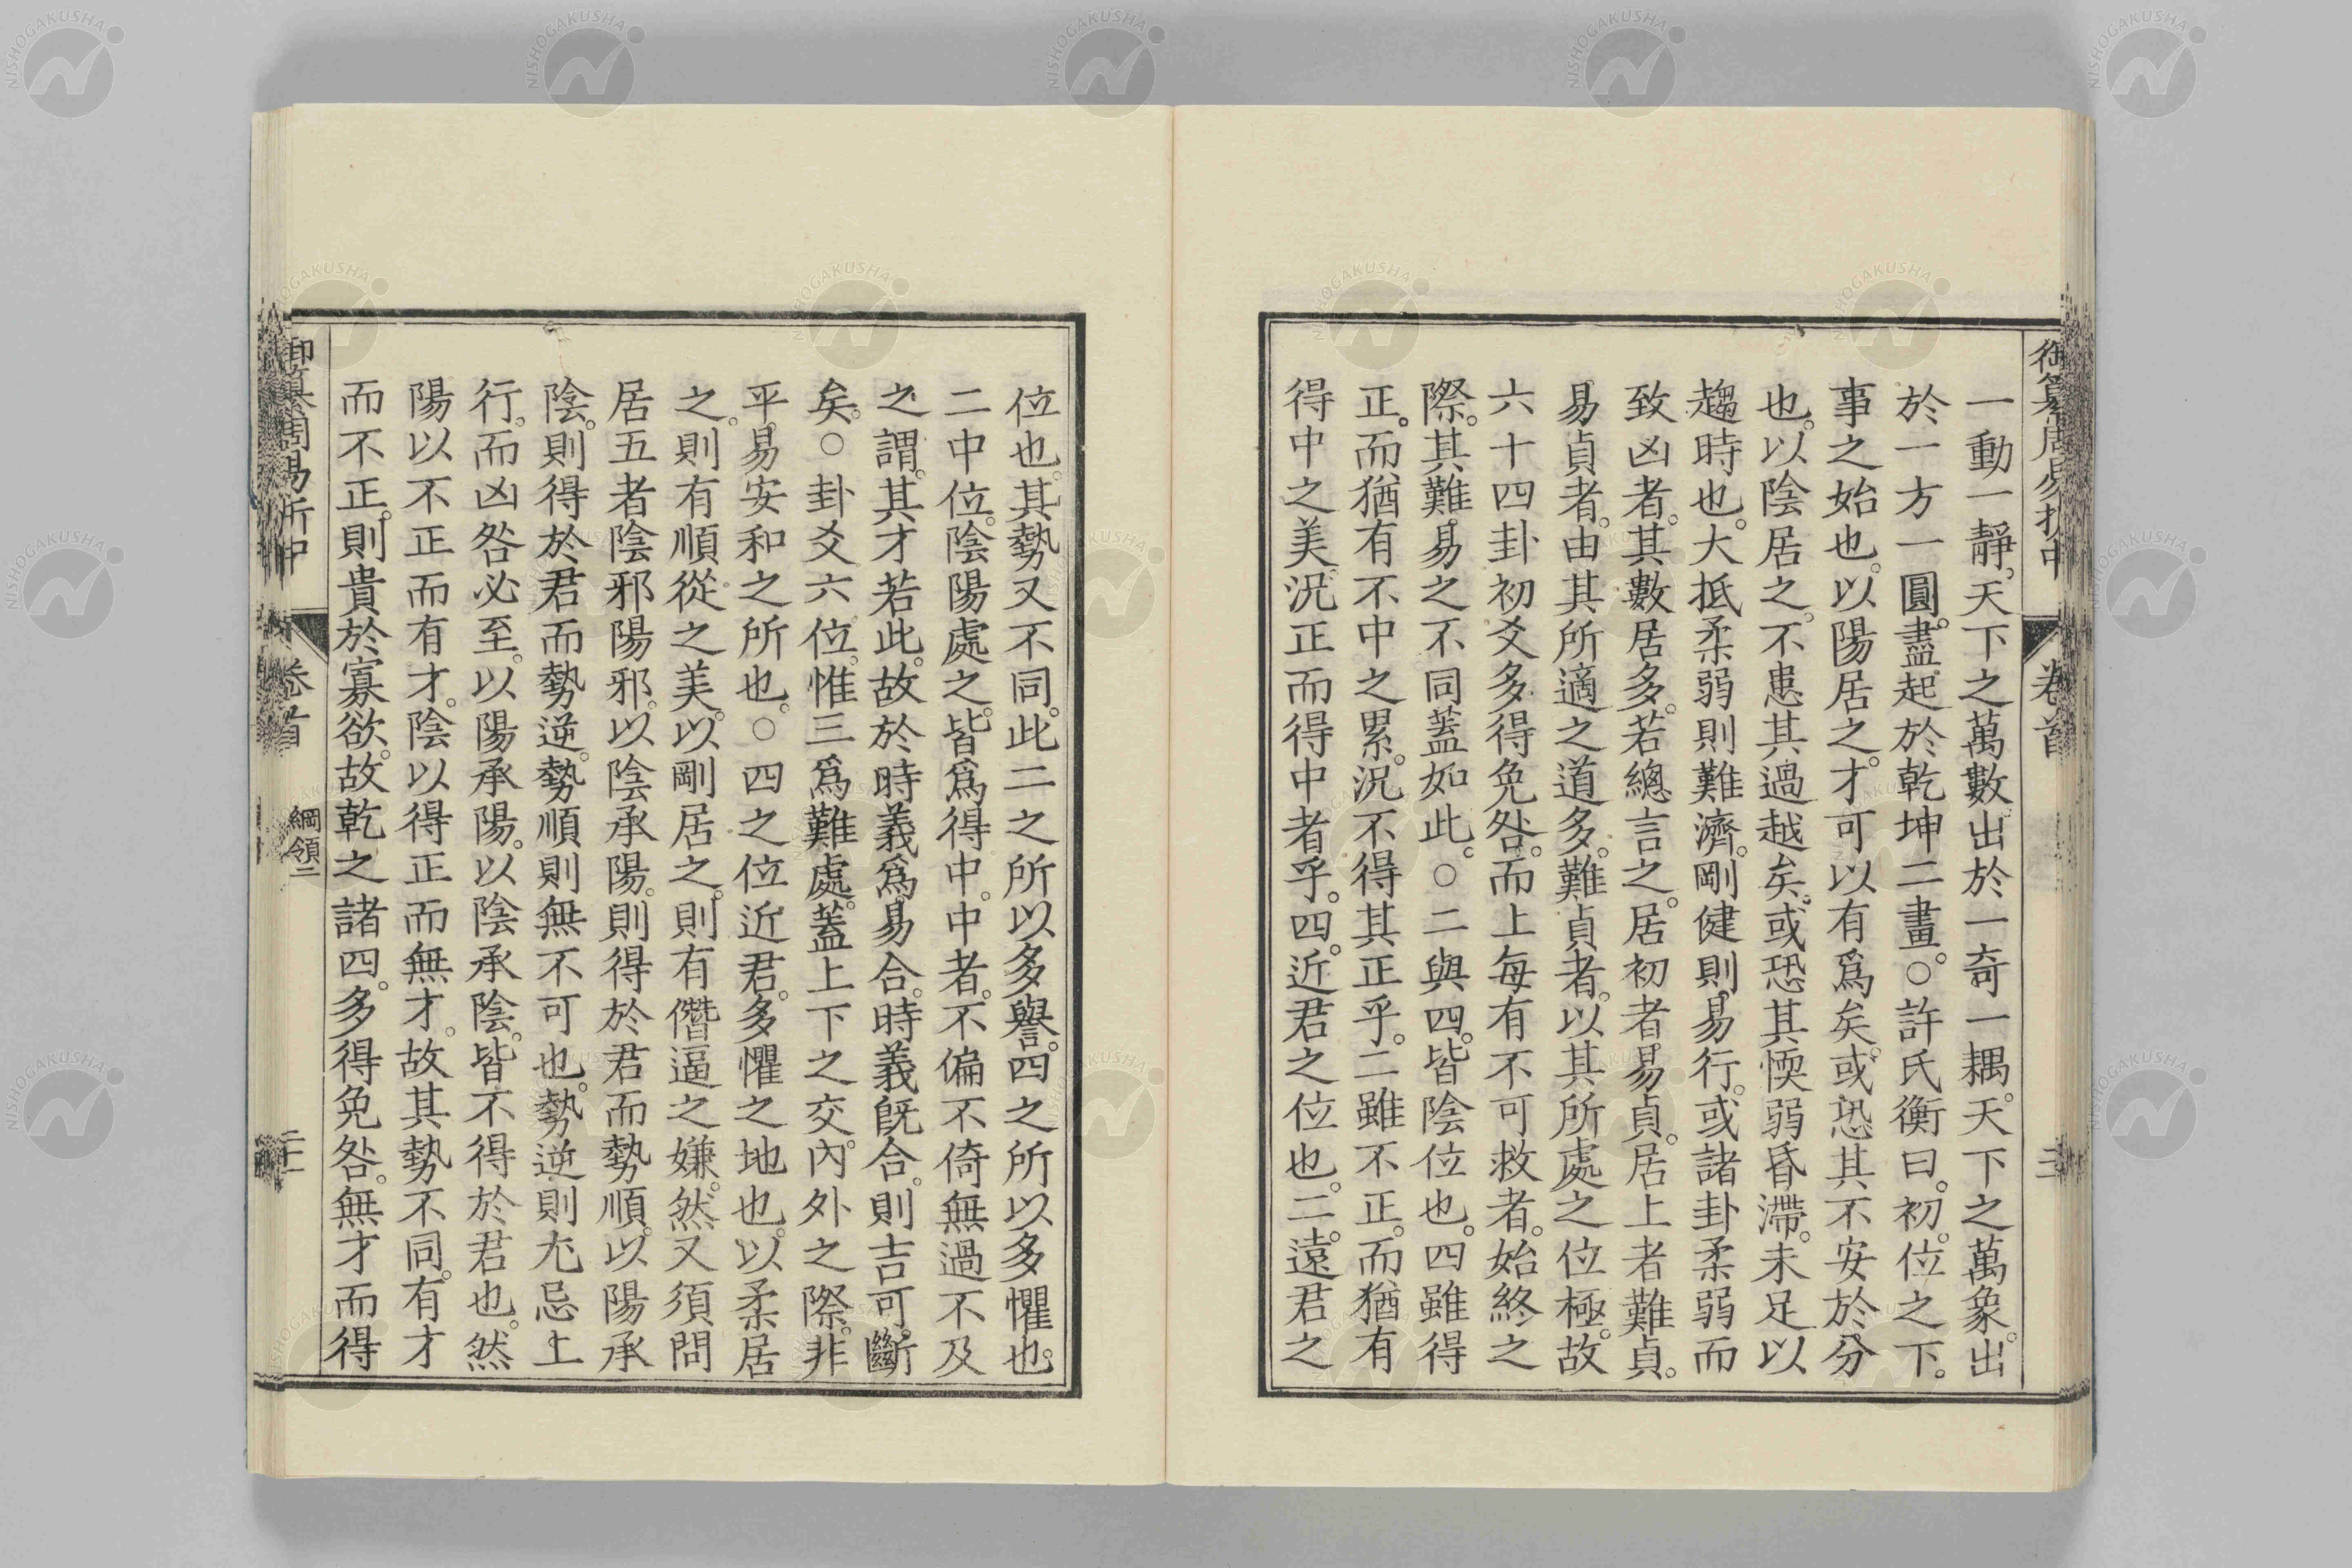 一動一靜。天下之萬數出於一奇一耦。天下之萬象。出
於一方一圓。盡起於乾坤二畫。○許氏衡曰。初。位之下。
事之始也。以陽居之。才可以有爲矣。或恐其不安於分
也。以陰居之。不患其過越矣。或恐其愞弱昏滯。未足以
趨時也。大抵柔弱則難濟。剛健則易行。或諸卦柔弱而
致凶者。其數居多。若總言之。居初者易貞。居上者難貞。
易貞者。由其所適之道多。難貞者。以其所處之位極。故
六十四卦初爻多得免咎。而上每有不可救者。始終之
際。其難易之不同蓋如此。○二與四。皆陰位也。四雖得
正。而猶有不中之累。況不得其正乎。二雖不正。而猶有
得中之美。況正而得中者乎。四。近君之位也。二。遠君之
位也。其勢又不同。此二之所以多譽。四之所以多懼也。
二中位。陰陽處之。皆爲得中。中者。不偏不倚無過不及
之謂。其才若此。故於時義爲易合。時義旣合。則吉可斷
矣。○卦爻六位。惟三爲難處。蓋上下之交。內外之際。非
平易安和之所也。○四之位近君。多懼之地也。以柔居
之。則有順從之美。以剛居之。則有僭逼之嫌。然又須問
居五者陰邪陽邪。以陰承陽。則得於君而勢順。以陽承
陰。則得於君而勢逆。勢順則無不可也。勢逆則尤忌上
行。而凶咎必至。以陽承陽。以陰承陰。皆不得於君也。然
陽以不正而有才。陰以得正而無才。故其勢不同。有才
而不正。則貴於寡欲。故乾之諸四。多得免咎。無才而得
御纂周易折中
卷首
綱領二